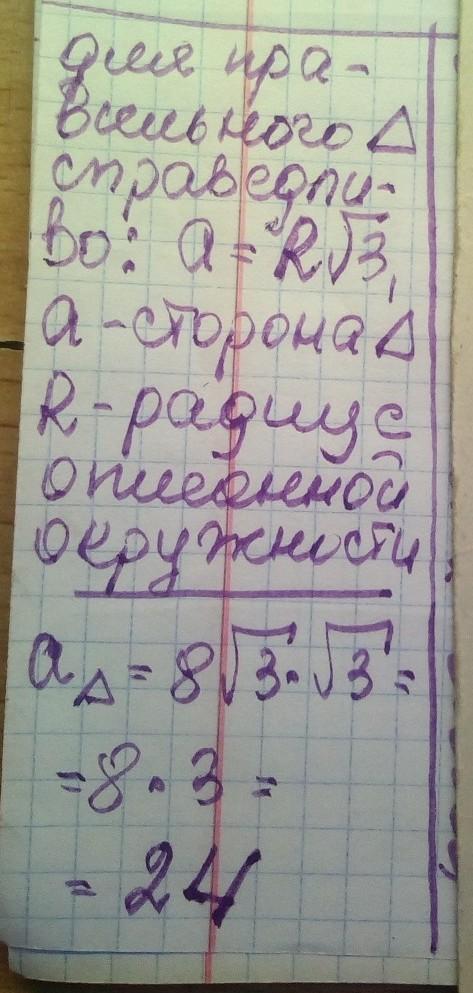 для пра-
вильного △
справедли-
во: a = R√3,
a - сторона △
R - радиус
описанной
окружности
a△ = 8√3 · √3 =
= 8 · 3 =
= 24